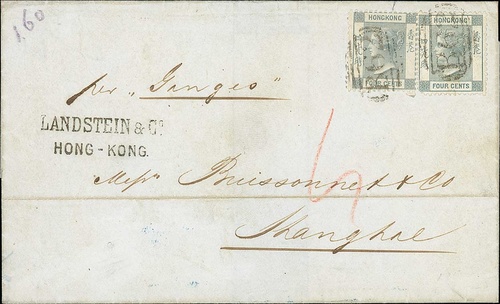 1.60
HONGKONG
FOUR CENTS
HONGKONG
FOUR CENTS
B62
B62
per "Ganges"
LANDSTEIN & Co
HONG-KONG.
Messrs Buissonnet & Co
Shanghae